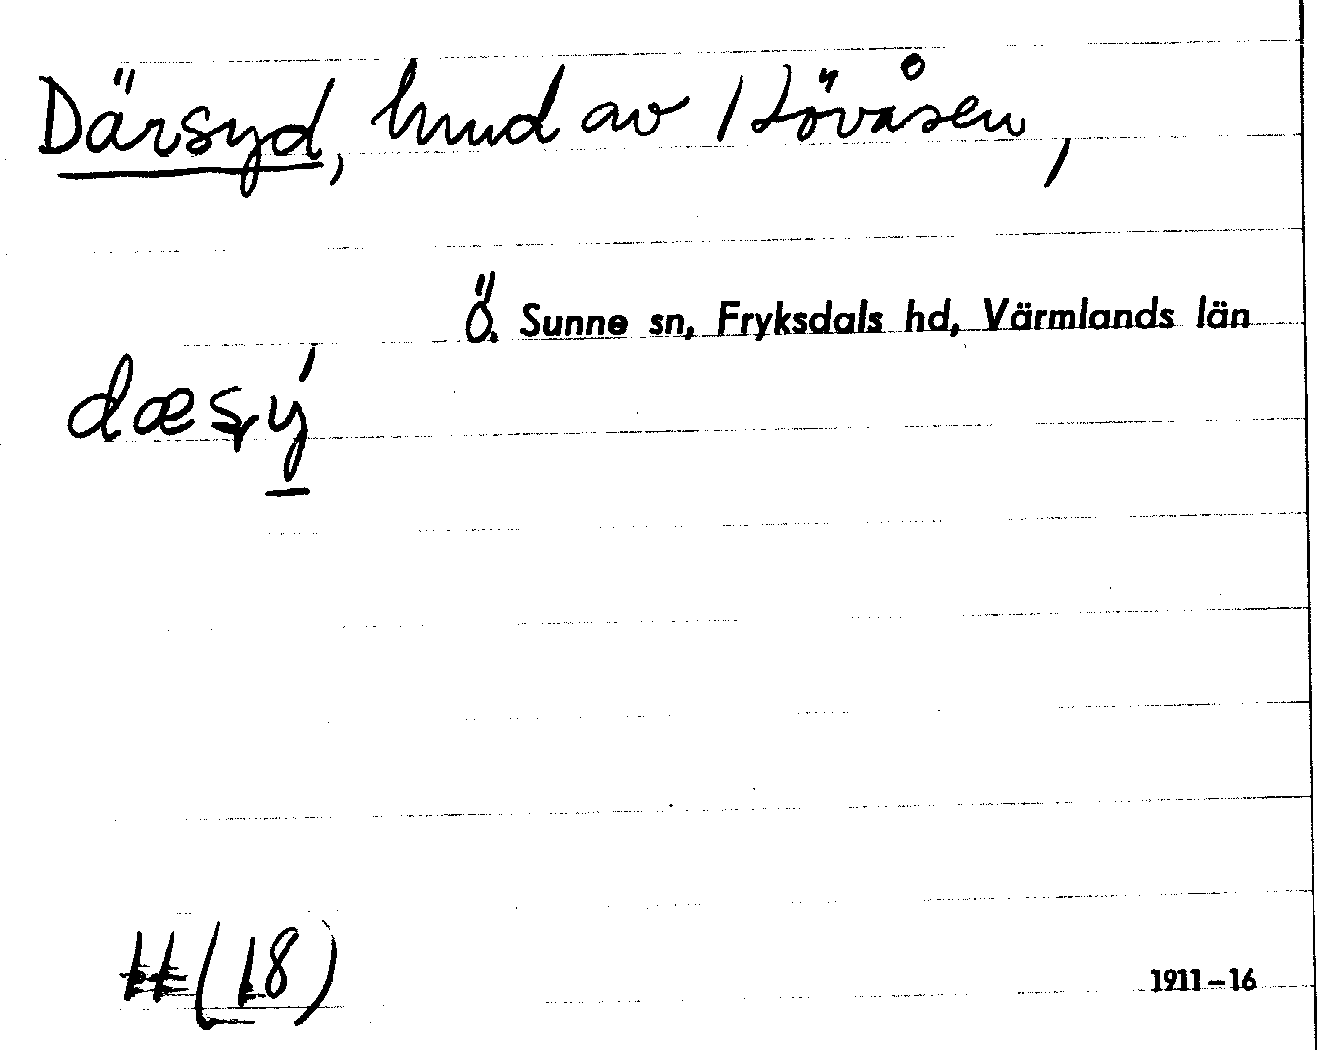 Därsyd, hmd av Hövåsen,
Ö. Sunne sn, Fryksdals hd, Värmlands län
dæșý
(18)
1911–16